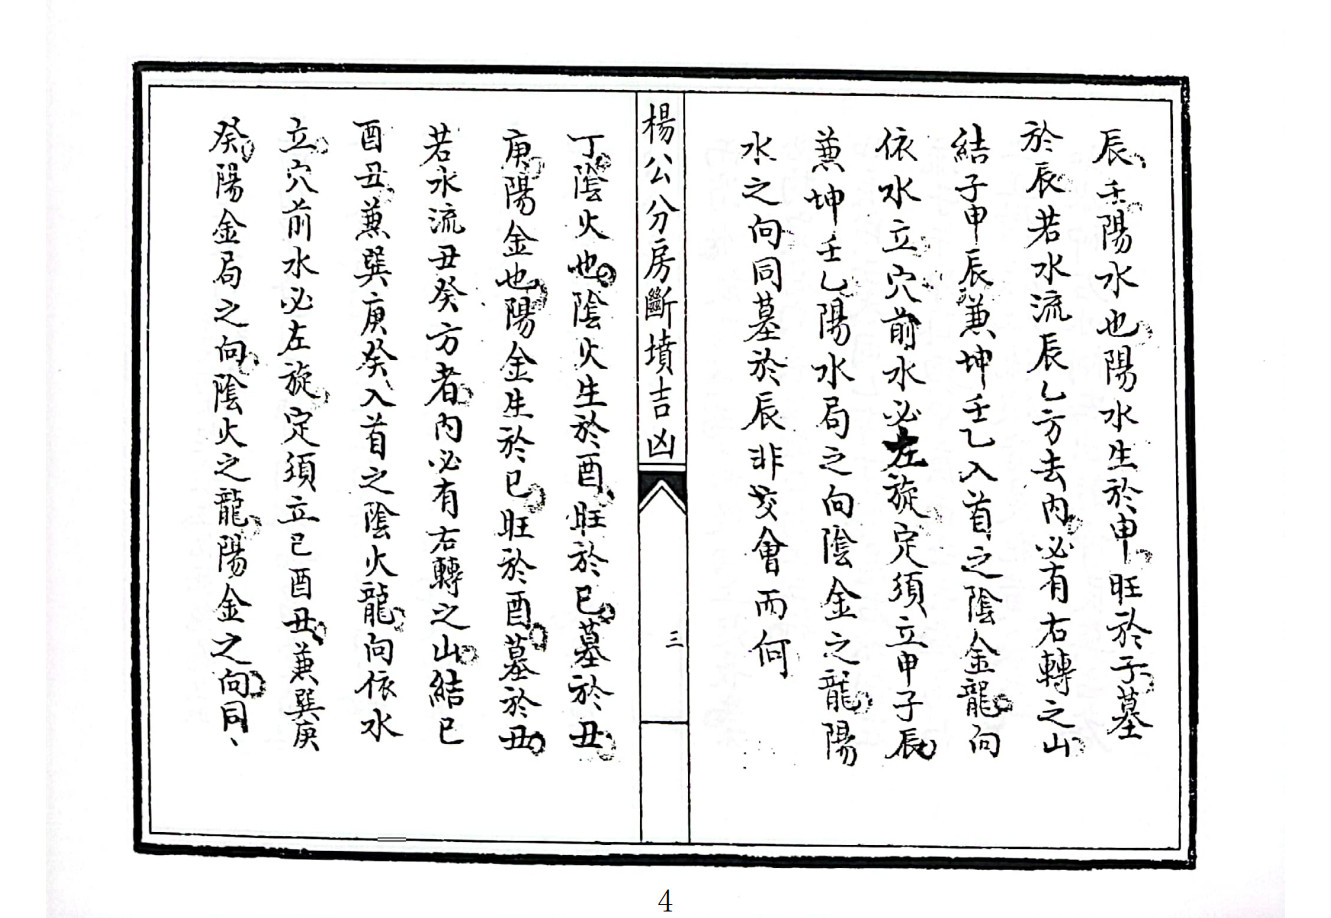 辰壬陽水也陽水生於申旺於子墓
於辰若水流辰乙方去內必有右轉之山
結子申辰兼坤壬乙入首之陰金龍向
依水立穴前水必左旋定須立申子辰
兼坤壬乙陽水局之向陰金之龍陽
水之向同墓於辰非交會而何
楊公分房斷墳吉凶
三
丁陰火也陰火生於酉旺於巳墓於丑
庚陽金也陽金生於巳旺於酉墓於丑
若水流丑癸方者內必有右轉之山結巳
酉丑兼巽庚癸入首之陰火龍向依水
立穴前水必左旋定須立巳酉丑兼巽庚
癸陽金局之向陰火之龍陽金之向同、
4